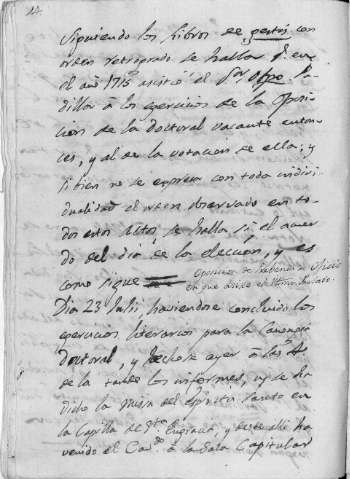 Siguiendo los libros de gestis con
orden retrogrado se halla q.e en
el año 1715 asistió el S.or Obpo. Pa-
dilla a los egercicios de la oposi-
cion de la doctoral vacante enton-
ces, y al de la votacion de ella; y
si bien no se expresa con toda indivi-
dualidad el orden observado en to-
dos estos actos, se halla si el acuer-
do del dia de la eleccion, y es
como sigue
oposicion de Prebenda de oficio
en que asiste el Illmo. Prelado.
Dia 23 Julii, haviendose concluido los
egercicios literarios para la Canongia
doctoral, y hechose ayer a las
de la tarde los informes, y se ha
dicho la Missa del Espiritu Santo en
la Capilla de S.ta Engracia, y desde alli ha
venido el Cav.do a la Sala Capitular